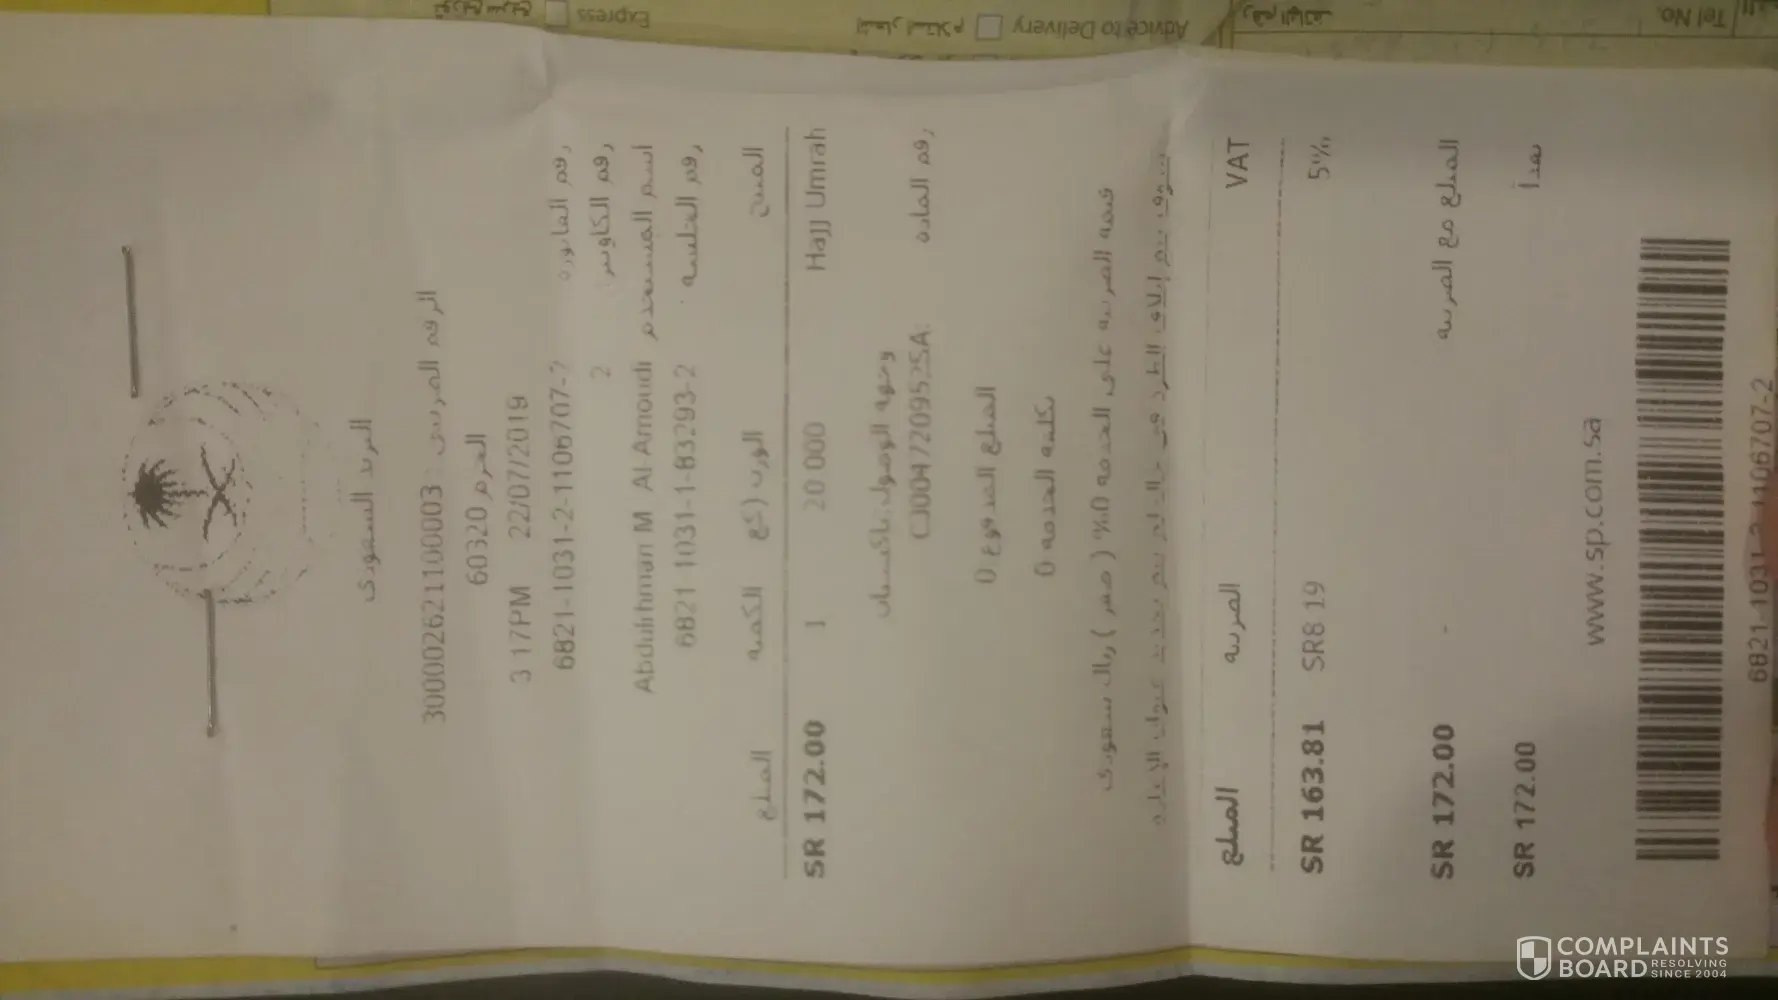 البريد السعودي
الرقم الضريبي : 300002621100003
الحرم 60320
3 17PM 22/07/2019
رقم الفاتورة 6821-1031-2-1106707-2
رقم الكاونتر 2
اسم المستخدم Abdulrhman M Al Amoudi
رقم الجلسة 6821 1031-1-83293-2
المنتج الوزن (كج الكمية المبلغ
Hajj Umrah 20 000 1 SR 172.00
وجهة الوصول: باكستان
رقم المادة CJ004720952SA:
المبلغ المدفوع 0
تكلفة الخدمة 0
قيمة الضريبة على الخدمة 0% ( صفر ) ريال سعودي
سوف يتم إتلاف الطرد في حالة لم يتم تحديد عنوان الإعادة
VAT الضريبة المبلغ
5% SR8 19 SR 163.81
المبلغ مع الضريبة SR 172.00
نقداً SR 172.00
www.sp.com.sa
6821-1031-2-1106707-2
Tel No.
رقم الهاتف
Advice to Delivery
إشعار استلام
Express
COMPLAINTS
BOARD RESOLVING SINCE 2004